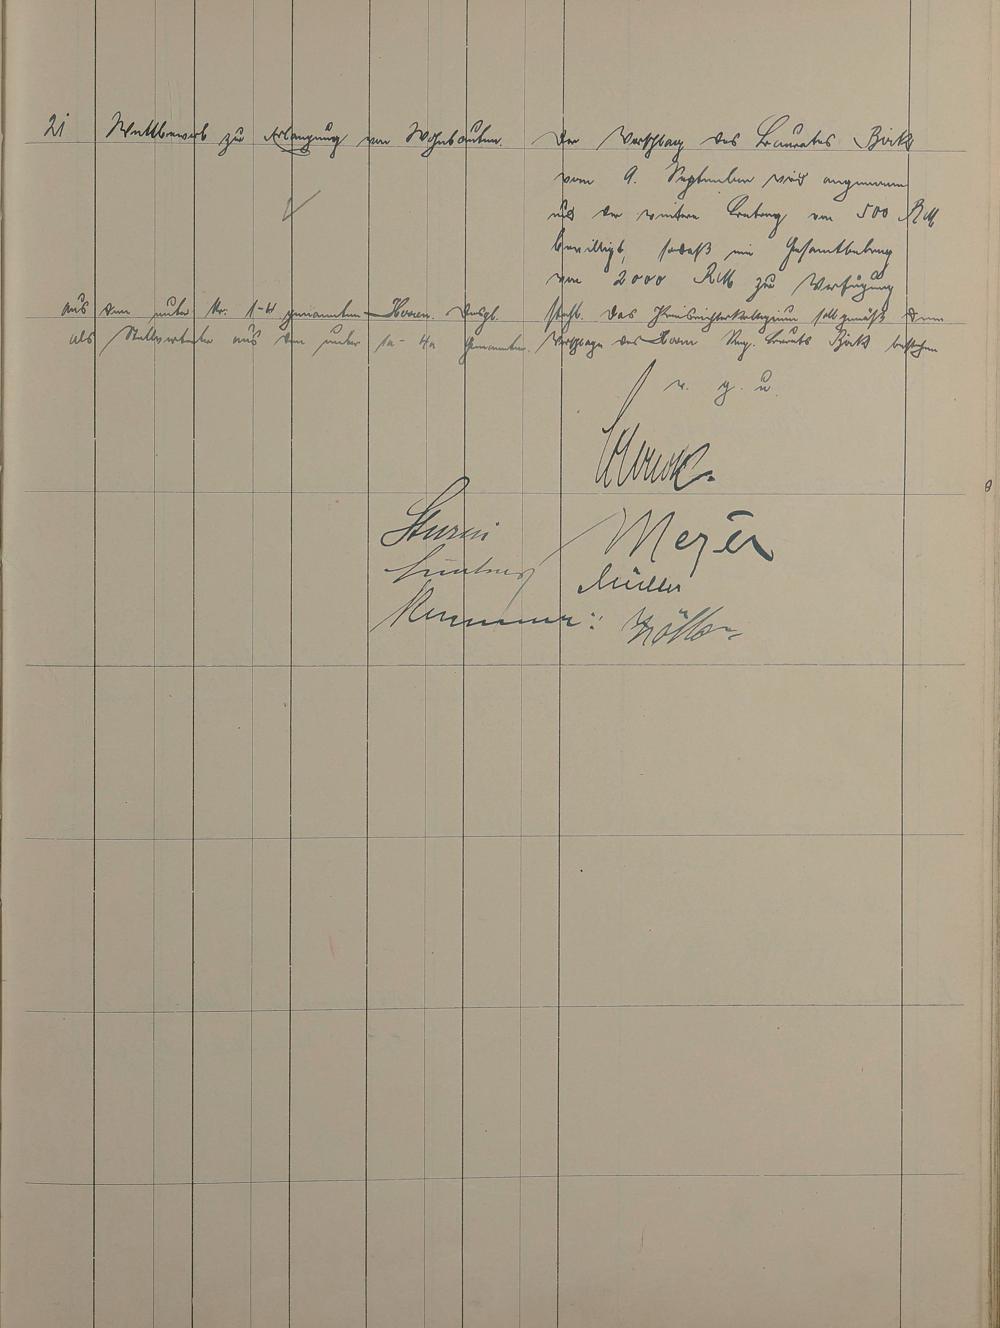 21 Wettbewerb zur Erlangung von Wohnbauten. Der Vorschlag des Baurates Birk
vom 9. September wird angenommen
und der weitere Betrag von 500 RM
bewilligt, sodaß ein Gesamtbetrag
von 2000 RM zur Verfügung
steht. Das Preisrichterkollegium soll gemäß dem
Vorschlage des Herrn Reg. Baurats Birk bestehen
aus den unter Nr. 1-4 genannten Herren. Desgl.
als Stellvertreter aus den unter 1a - 4a genannten.
v. g. u.
Sturm Meyer
Lindner Müller